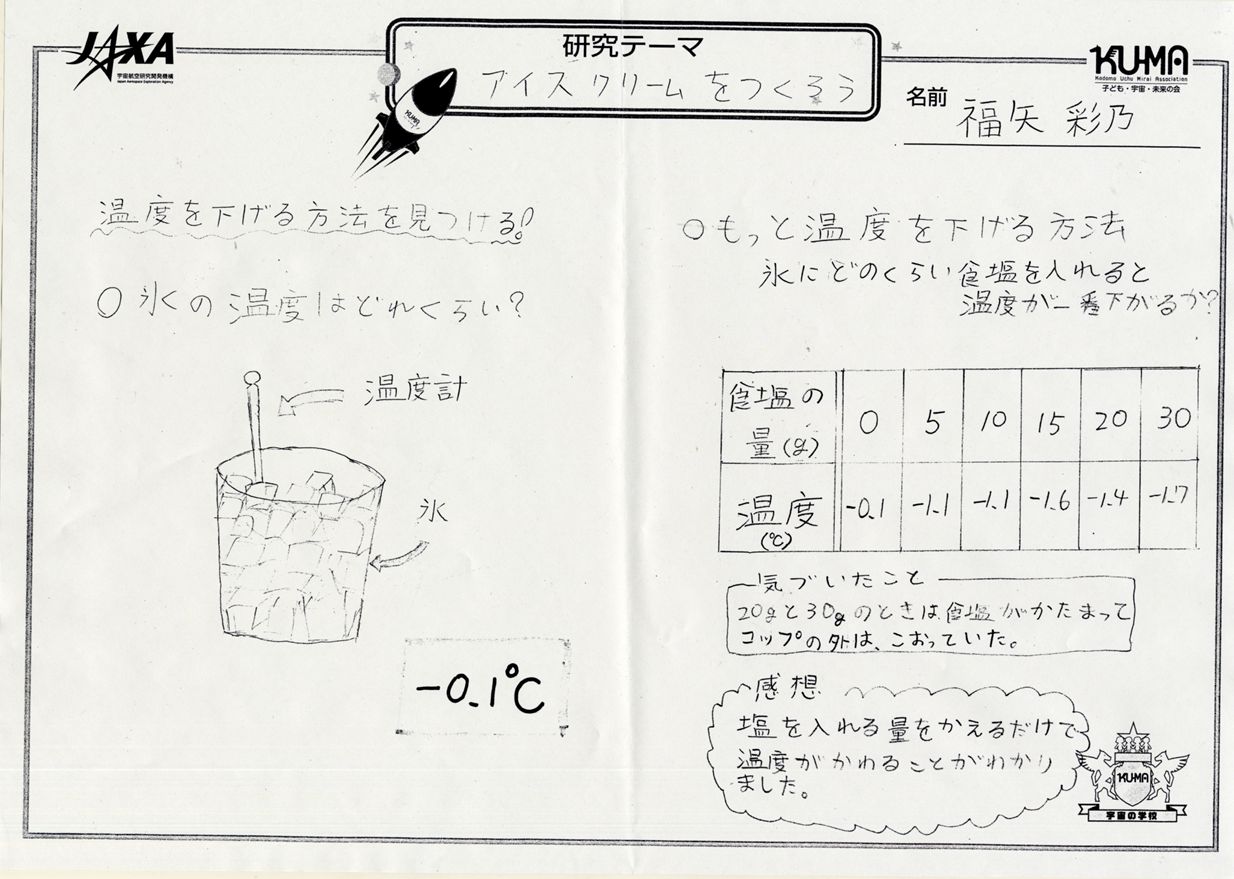 JAXA
宇宙航空研究開発機構
Japan Aerospace Exploration Agency
研究テーマ
アイスクリームをつくろう
KUMA
KU-MA
Kodomo Uchu Mirai Association
子ども・宇宙・未来の会
名前 福矢 彩乃
温度を下げる方法を見つける!
○氷の温度はどれくらい?
温度計
氷
-0.1℃
○もっと温度を下げる方法
氷にどのくらい食塩を入れると
温度が一番下がるか?
食塩の量(g) 0 5 10 15 20 30
温度(℃) -0.1 -1.1 -1.1 -1.6 -1.4 -1.7
気づいたこと
20gと30gのときは食塩がかたまって
コップの外は、こおっていた。
感想
塩を入れる量をかえるだけで
温度がかわることがわかり
ました。
KU-MA
宇宙の学校